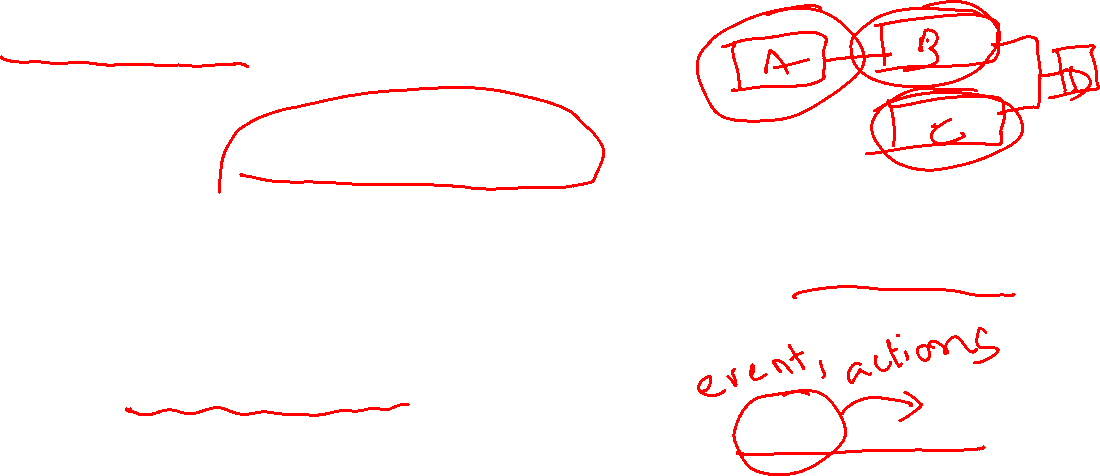 A
B
C
D
event, actions